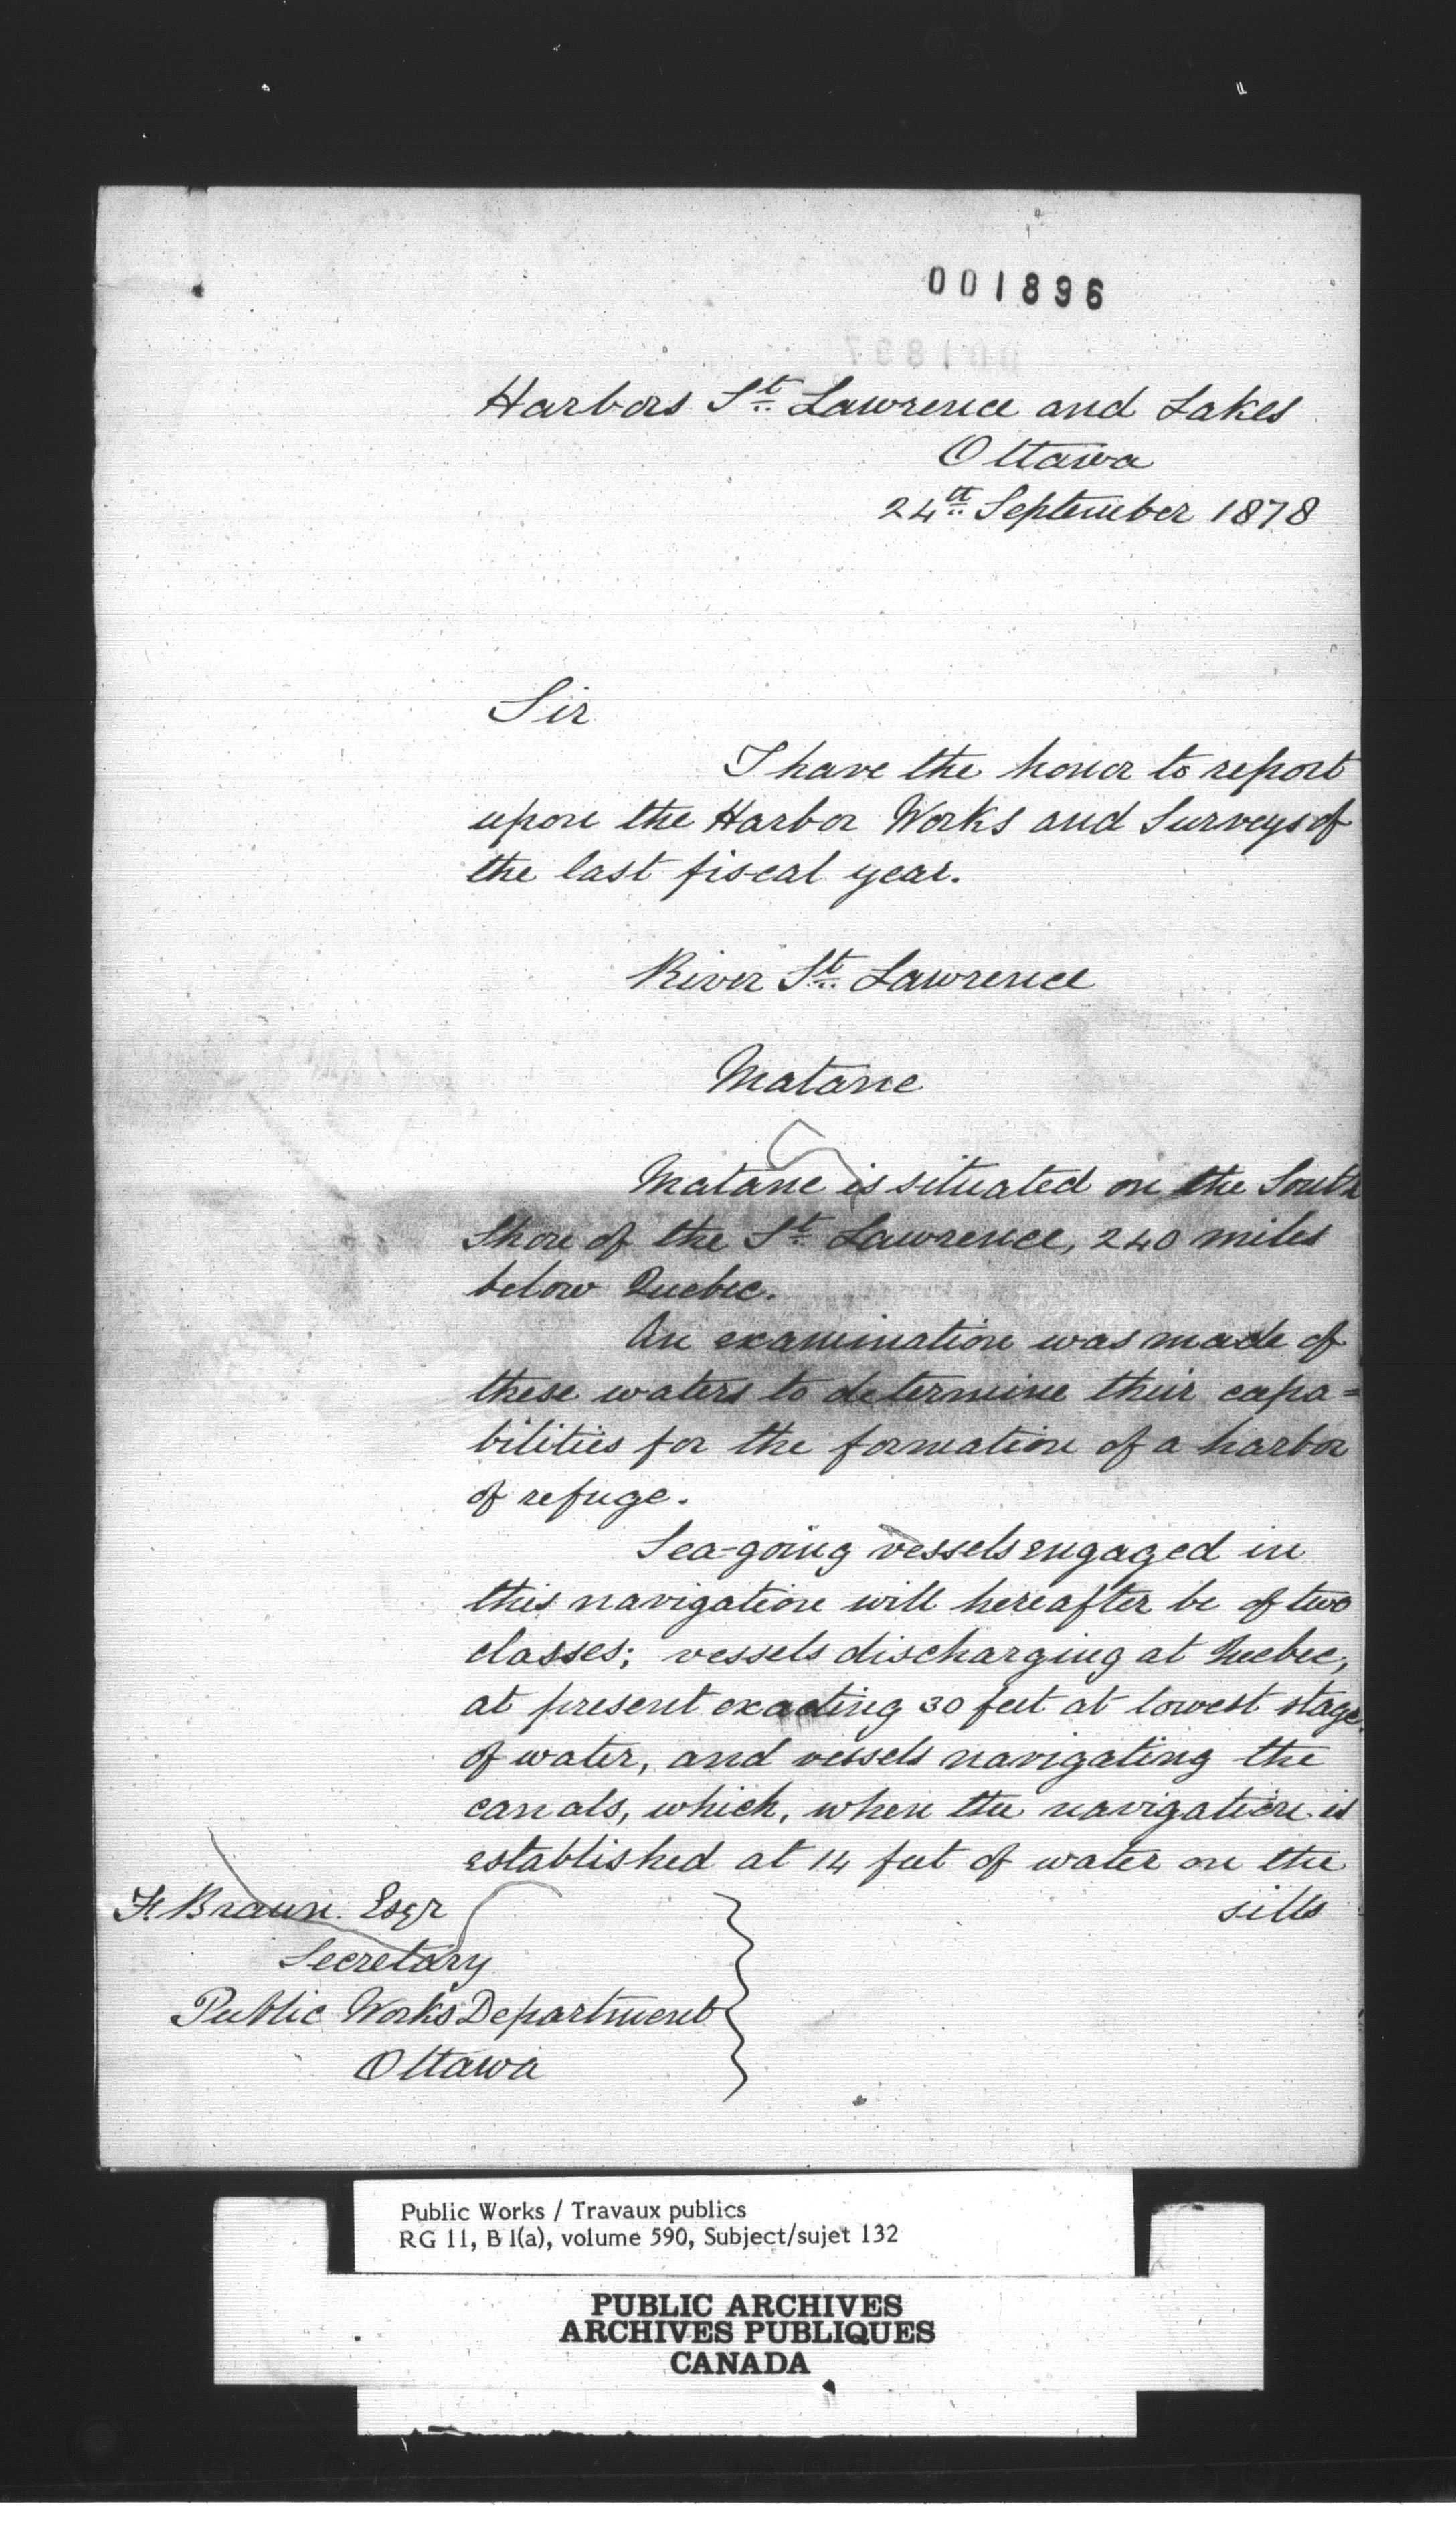 001896
Harbors St. Lawrence and Lakes
Ottawa
24th September 1878
Sir
I have the honor to report
upon the Harbor Works and Surveys of
the last fiscal year.
River St. Lawrence
Matane
Matane is situated on the South
Shore of the St. Lawrence, 240 miles
below Quebec.
An examination was made of
these waters to determine their capa=
bilities for the formation of a harbor
of refuge.
Sea-going vessels engaged in
this navigation will hereafter be of two
classes; vessels discharging at Quebec,
at present exacting 30 feet at lowest stage
of water, and vessels navigating the
canals, which, when the navigation is
established at 14 feet of water on the
sills
F. Braun. Esqr
Secretary
Public Works Department
Ottawa
Public Works / Travaux publics
RG 11, B 1(a), volume 590, Subject/sujet 132
PUBLIC ARCHIVES
ARCHIVES PUBLIQUES
CANADA